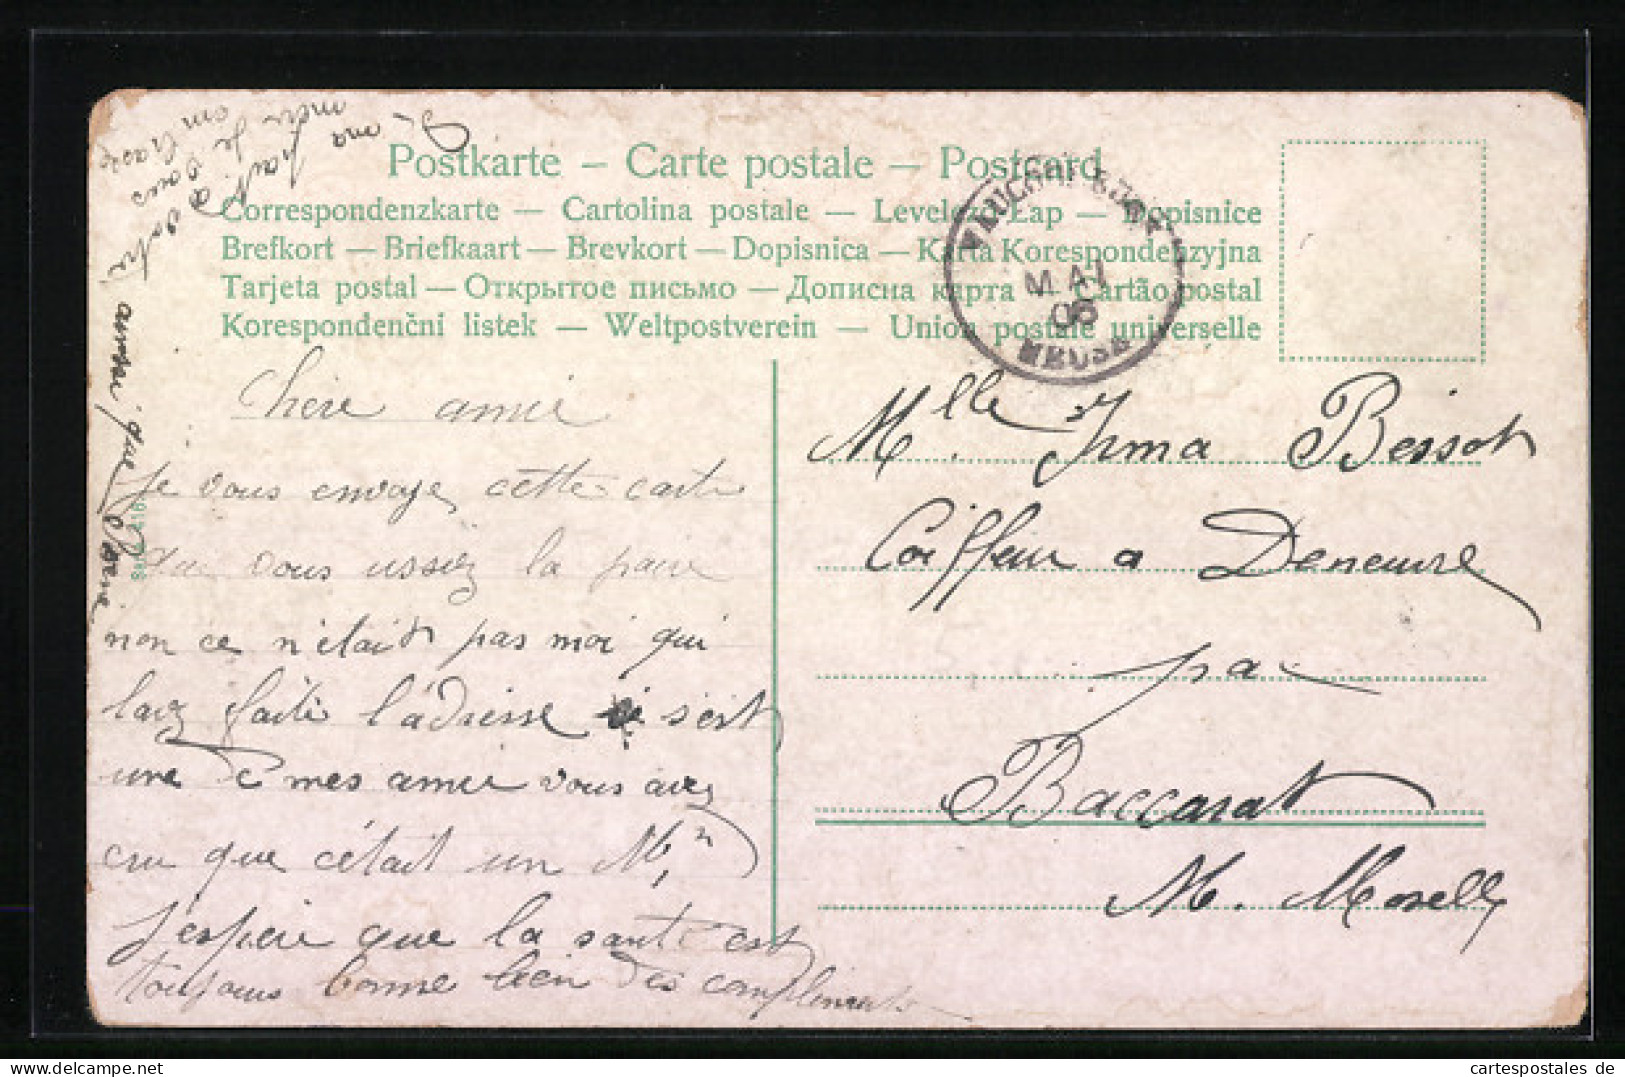 Postkarte – Carte postale – Postcard
Correspondenzkarte – Cartolina postale – Levelező Lap – Dopisnice
Brefkort – Briefkaart – Brevkort – Dopisnica – Karta Korespondenzyjna
Tarjeta postal – Открытое письмо – Дописна карта – Cartão postal
Korespondenční listek – Weltpostverein – Union postale universelle
MAI
06
MEUSE
Chère amie
Je vous envoye cette carte
que vous ussiez la paire
non ce n'était pas moi qui
lavez faite l'adresse s'est
une de mes amie vous avez
cru que c'était un Mr
J'espère que la santé est
toujours bonne bien des compliments
De ma
part a votre
mère je vous
em brasse
Mlle Irma Bessot
Coiffeur a Deneuvre
par
Baccarat
M. Moselle
cartespostales de